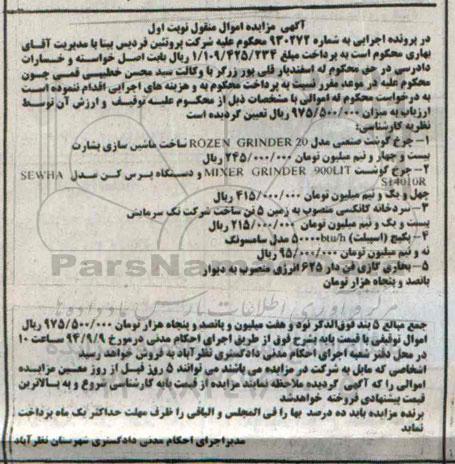 آگهی مزایده اموال منقول نوبت اول
در پرونده اجرایی به شماره ۹۳۰۲۷۲ محکوم علیه شرکت پروتئین فردیس بینا با مدیریت آقای
بهاری محکوم است به پرداخت مبلغ ۱/۱۰۹/۴۲۵/۲۳۴ ریال بابت اصل خواسته و خسارات
دادرسی در حق محکوم له اسفندیار قلی پور زرگر با وکالت سید محسن خطیبی قمی چون
محکوم علیه در موعد مقرر نسبت به پرداخت محکوم به و هزینه های اجرایی اقدام ننموده است
به درخواست محکوم له اموالی با مشخصات ذیل از محکوم علیه توقیف و ارزش آن توسط
ارزیاب به میزان ۹۷۵/۵۰۰/۰۰۰ ریال تعیین گردیده است
نظریه کارشناسی:
۱-چرخ گوشت صنعتی مدل ROZEN GRINDER 20 ساخت ماشین سازی بشارت
بیست و چهار و نیم میلیون تومان ۲۴۵/۰۰۰/۰۰۰ ریال
۲-چرخ گوشت MIXER GRINDER 900LIT و دستگاه برس کن مدل SEWHA
S14010R
چهل و یک و نیم میلیون تومان ۴۱۵/۰۰۰/۰۰۰ ریال
۳-سردخانه کانکسی منصوب به زمین ۵ تن ساخت شرکت تک سرمایش
بیست و یک و نیم میلیون تومان ۲۱۵/۰۰۰/۰۰۰ ریال
۴-پکیج (اسپلت) ۵۰۰۰۰btu/h مدل سامسونگ
نه و نیم میلیون تومان ۹۵/۰۰۰/۰۰۰ ریال
۵-بخاری گازی فن دار ۶۲۵ انرژی منصوب به دیوار
پانصد و پنجاه هزار تومان
جمع مبالغ ۵ بند فوق‌الذکر نود و هفت میلیون و پانصد و پنجاه هزار تومان ۹۷۵/۵۰۰/۰۰۰ ریال
اموال توقیفی با قیمت پایه بشرح فوق از طریق اجرای احکام مدنی درمورخ ۹۴/۹/۹ ساعت ۱۰
در محل دفتر شعبه اجرای احکام مدنی دادگستری نظرآباد به فروش خواهد رسید
اشخاصی که مایل به شرکت در مزایده می باشند می توانند ۵ روز قبل از روز معین مزایده
اموالی را که آگهی گردیده ملاحظه نمایند مزایده از قیمت پایه کارشناسی شروع و به بالاترین
قیمت پیشنهادی فروخته خواهدشد
برنده مزایده باید ده درصد بها را فی المجلس و الباقی را ظرف مهلت حداکثر یک ماه پرداخت
نماید
مدیراجرای احکام مدنی دادگستری شهرستان نظرآباد